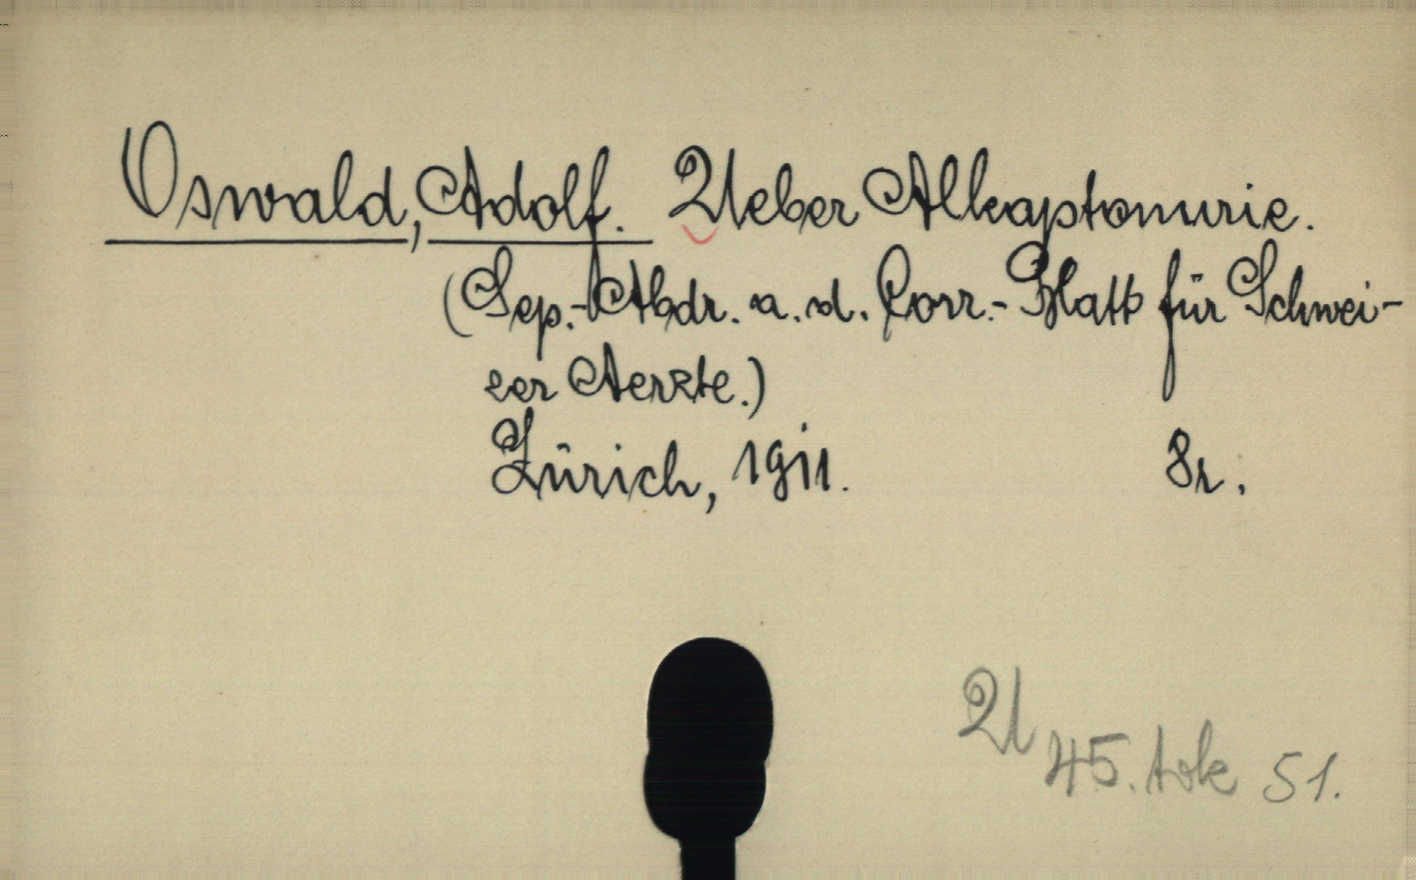 Oswald, Adolf. Ueber Alkaptonurie.
(Sep.-Abdr. a. d. Corr.-Blatt für Schwei-
zer Aerzte.)
Zürich, 1911. 8r.
U 45. tok 51.